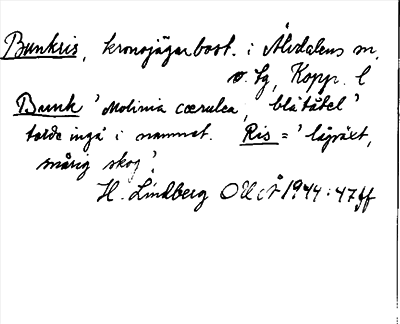 Bunkris, kronojägarbost. i Älvdalens sn,
v. fg, Kopp. l
Bunk 'Molinia cærulea, blåtåtel'
torde ingå i namnet. Ris = 'lågväxt,
snårig skog'.
H. Lindberg OUÅ 1944: 47 ff